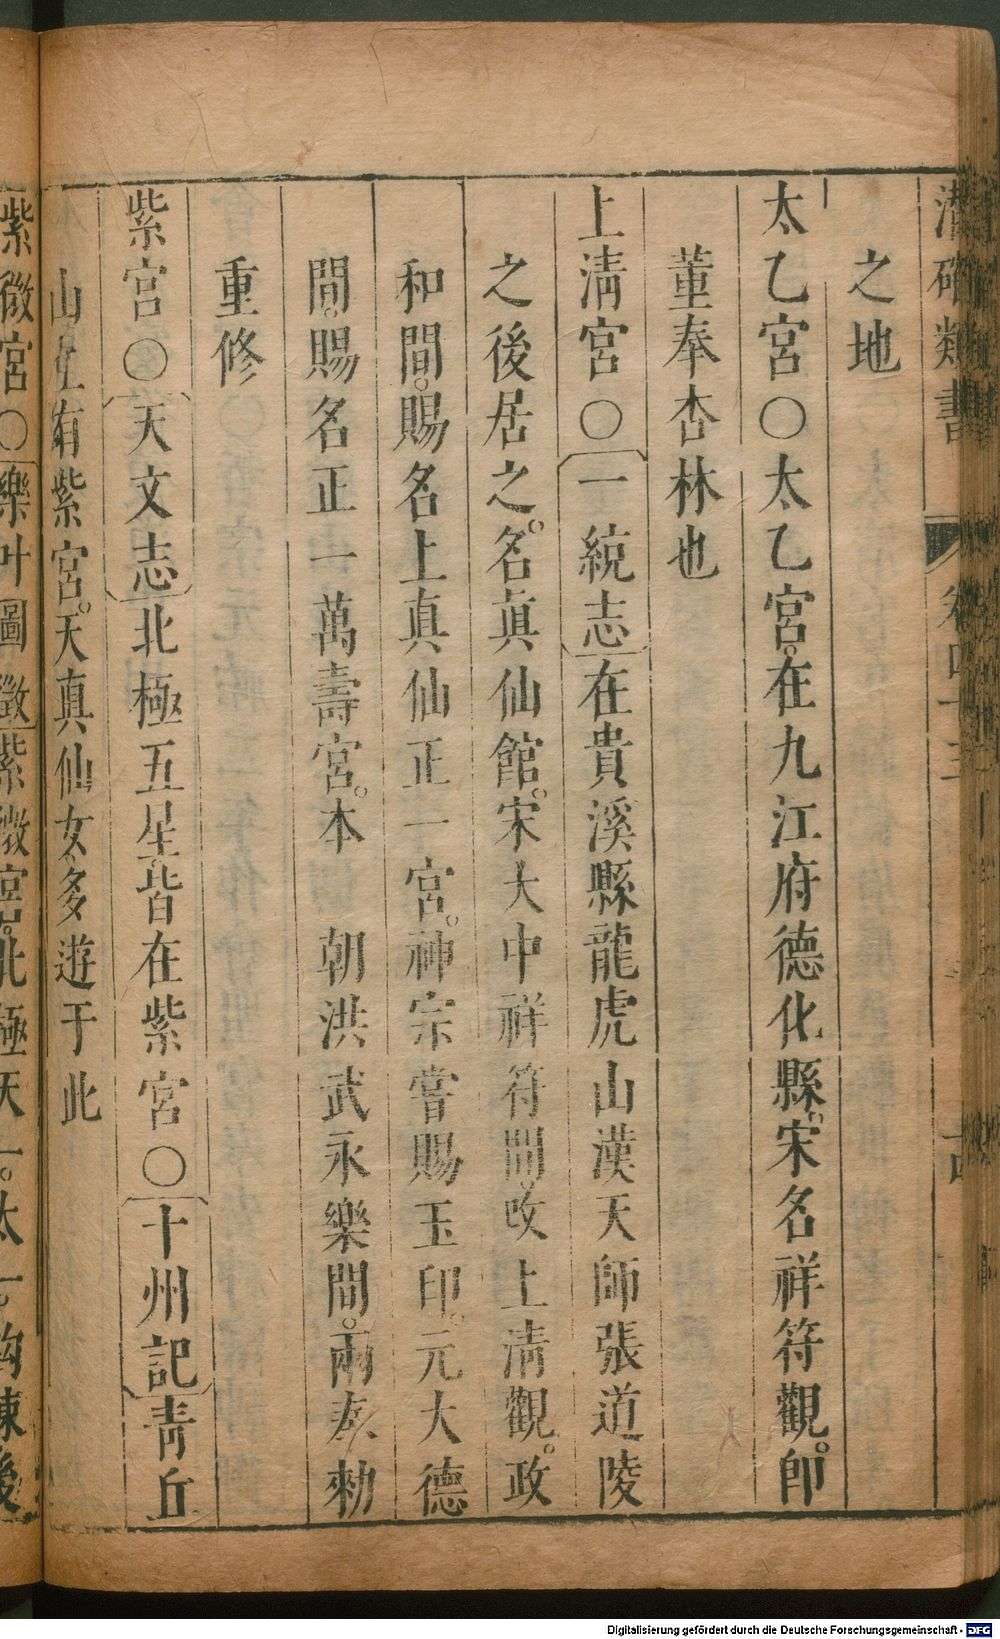 潛確類書 卷四十三 十四
之地
太乙宮○太乙宮在九江府德化縣宋名祥符觀即
董奉杏林也
上淸宮○一統志在貴溪縣龍虎山漢天師張道陵
之後居之名眞仙館宋大中祥符間改上淸觀政
和間賜名上真仙正一宮神宗嘗賜玉印元大德
間賜名正一萬壽宮本 朝洪武永樂間兩奉勑
重修
紫宮○天文志北極五星皆在紫宮○十州記靑丘
山上有紫宮天真仙女多遊于此
紫微宮○樂叶圖徵紫微宮北極天一太一鈎陳後
Digitalisierung gefördert durch die Deutsche Forschungsgemeinschaft - DFG